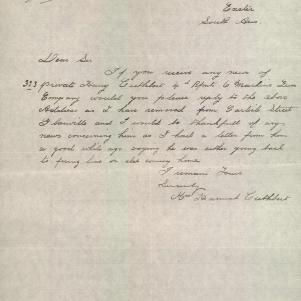 Exeter
South Aus
Dear Sir
If you receive any news of
323 Private Henry Cuthbert 4th Rfnts 6 Machine Gun
Company would you please reply to the above
Address as I have removed from Carlisle Street
Glanville and I would be thankfull of any
news concerning him as I had a letter from him
a good while ago saying he was either going back
to firing line or else coming home
I remain Yours
Sincerely
Mrs Hannah Cuthbert